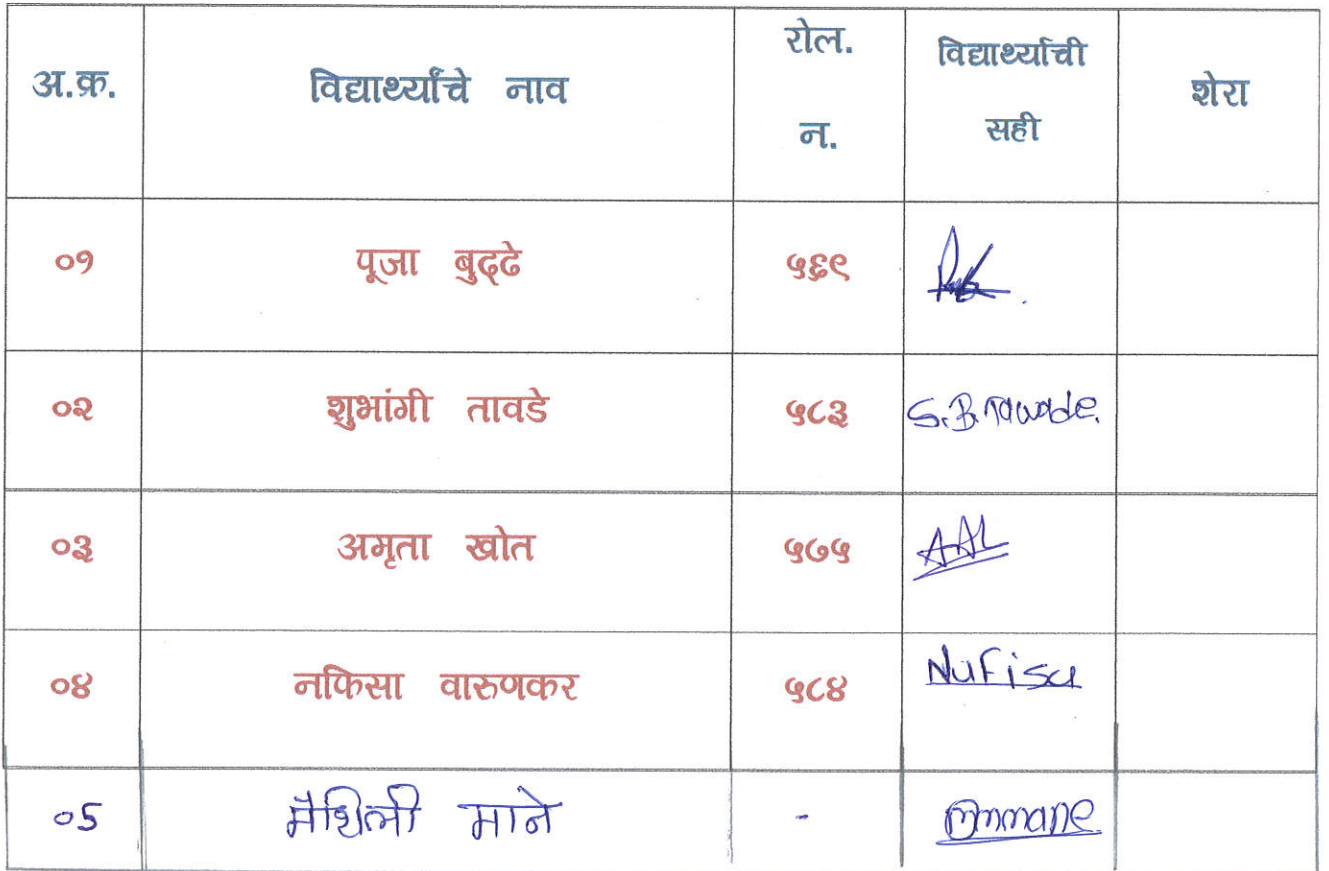 अ.क्र. विद्यार्थ्यांचे नाव रोल. न. विद्यार्थ्यांची सही शेरा
०१ पूजा बुद्ढे ५६९
०२ शुभांगी तावडे ५८३ S.B.Tawade.
०३ अमृता खोत ५७५
०४ नफिसा वारुणकर ५८४ Nafisa
०5 मैथिली माने - Mmmane